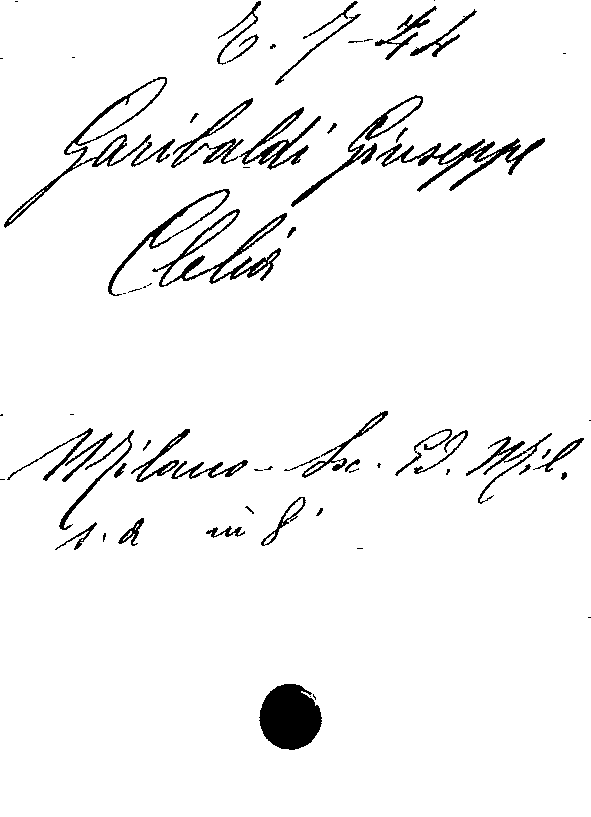 E. 7-44
Garibaldi Giuseppe
Clelia
Milano - Soc. Ed. Mil.
s. a in 8°